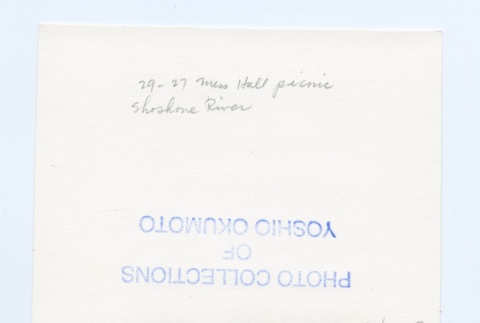 29-27 Mess Hall picnic
Shoshone River
PHOTO COLLECTIONS
OF
YOSHIO OKUMOTO